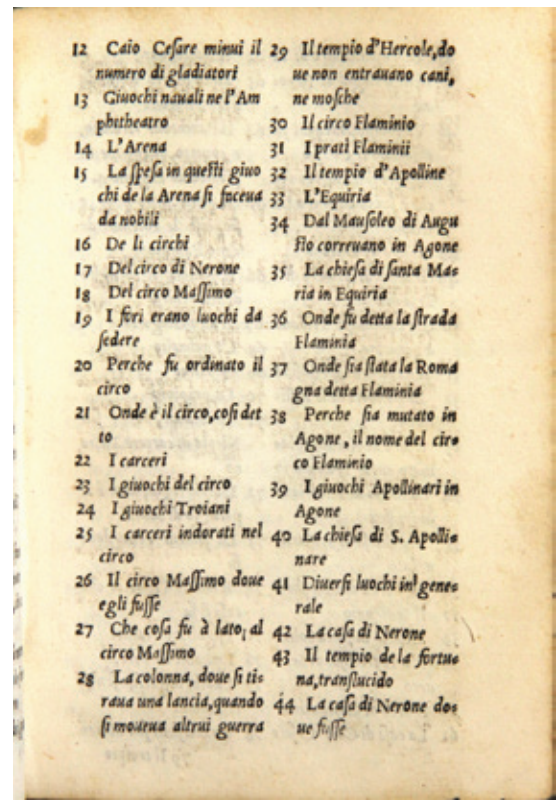 12 Caio Ceſare minuì il
numero di gladiatori
13 Giuochi nauali ne l'Am
phitheatro
14 L'Arena
15 La ſpeſa in queſti giuo
chi de la Arena ſi faceua
da nobili
16 De li circhi
17 Del circo di Nerone
18 Del circo Maſſimo
19 I fori erano luochi da
ſedere
20 Perche fu ordinato il
circo
21 Onde è il circo, coſi det
to
22 I carceri
23 I giuochi del circo
24 I giuochi Troiani
25 I carceri indorati nel
circo
26 Il circo Maſſimo doue
egli fuſſe
27 Che coſa fu à lato, al
circo Maſſimo
28 La colonna, doue ſi ti=
raua una lancia, quando
ſi moueua altrui guerra
29 Il tempio d'Hercole, do
ue non entrauano cani,
ne moſche
30 Il circo Flaminio
31 I prati Flaminii
32 Il tempio d'Apolline
33 L'Equiria
34 Dal Mauſoleo di Augu
ſto correuano in Agone
35 La chieſa di ſanta Ma=
ria in Equiria
36 Onde fu detta la ſtrada
Flaminia
37 Onde ſia ſtata la Roma
gna detta Flaminia
38 Perche ſia mutato in
Agone, il nome del cir=
co Flaminio
39 I giuochi Apollinari in
Agone
40 La chieſa di S. Apolli=
nare
41 Diuerſi luochi in gene=
rale
42 La caſa di Nerone
43 Il tempio de la fortu=
na, tranſlucido
44 La caſa di Nerone do=
ue fuſſe